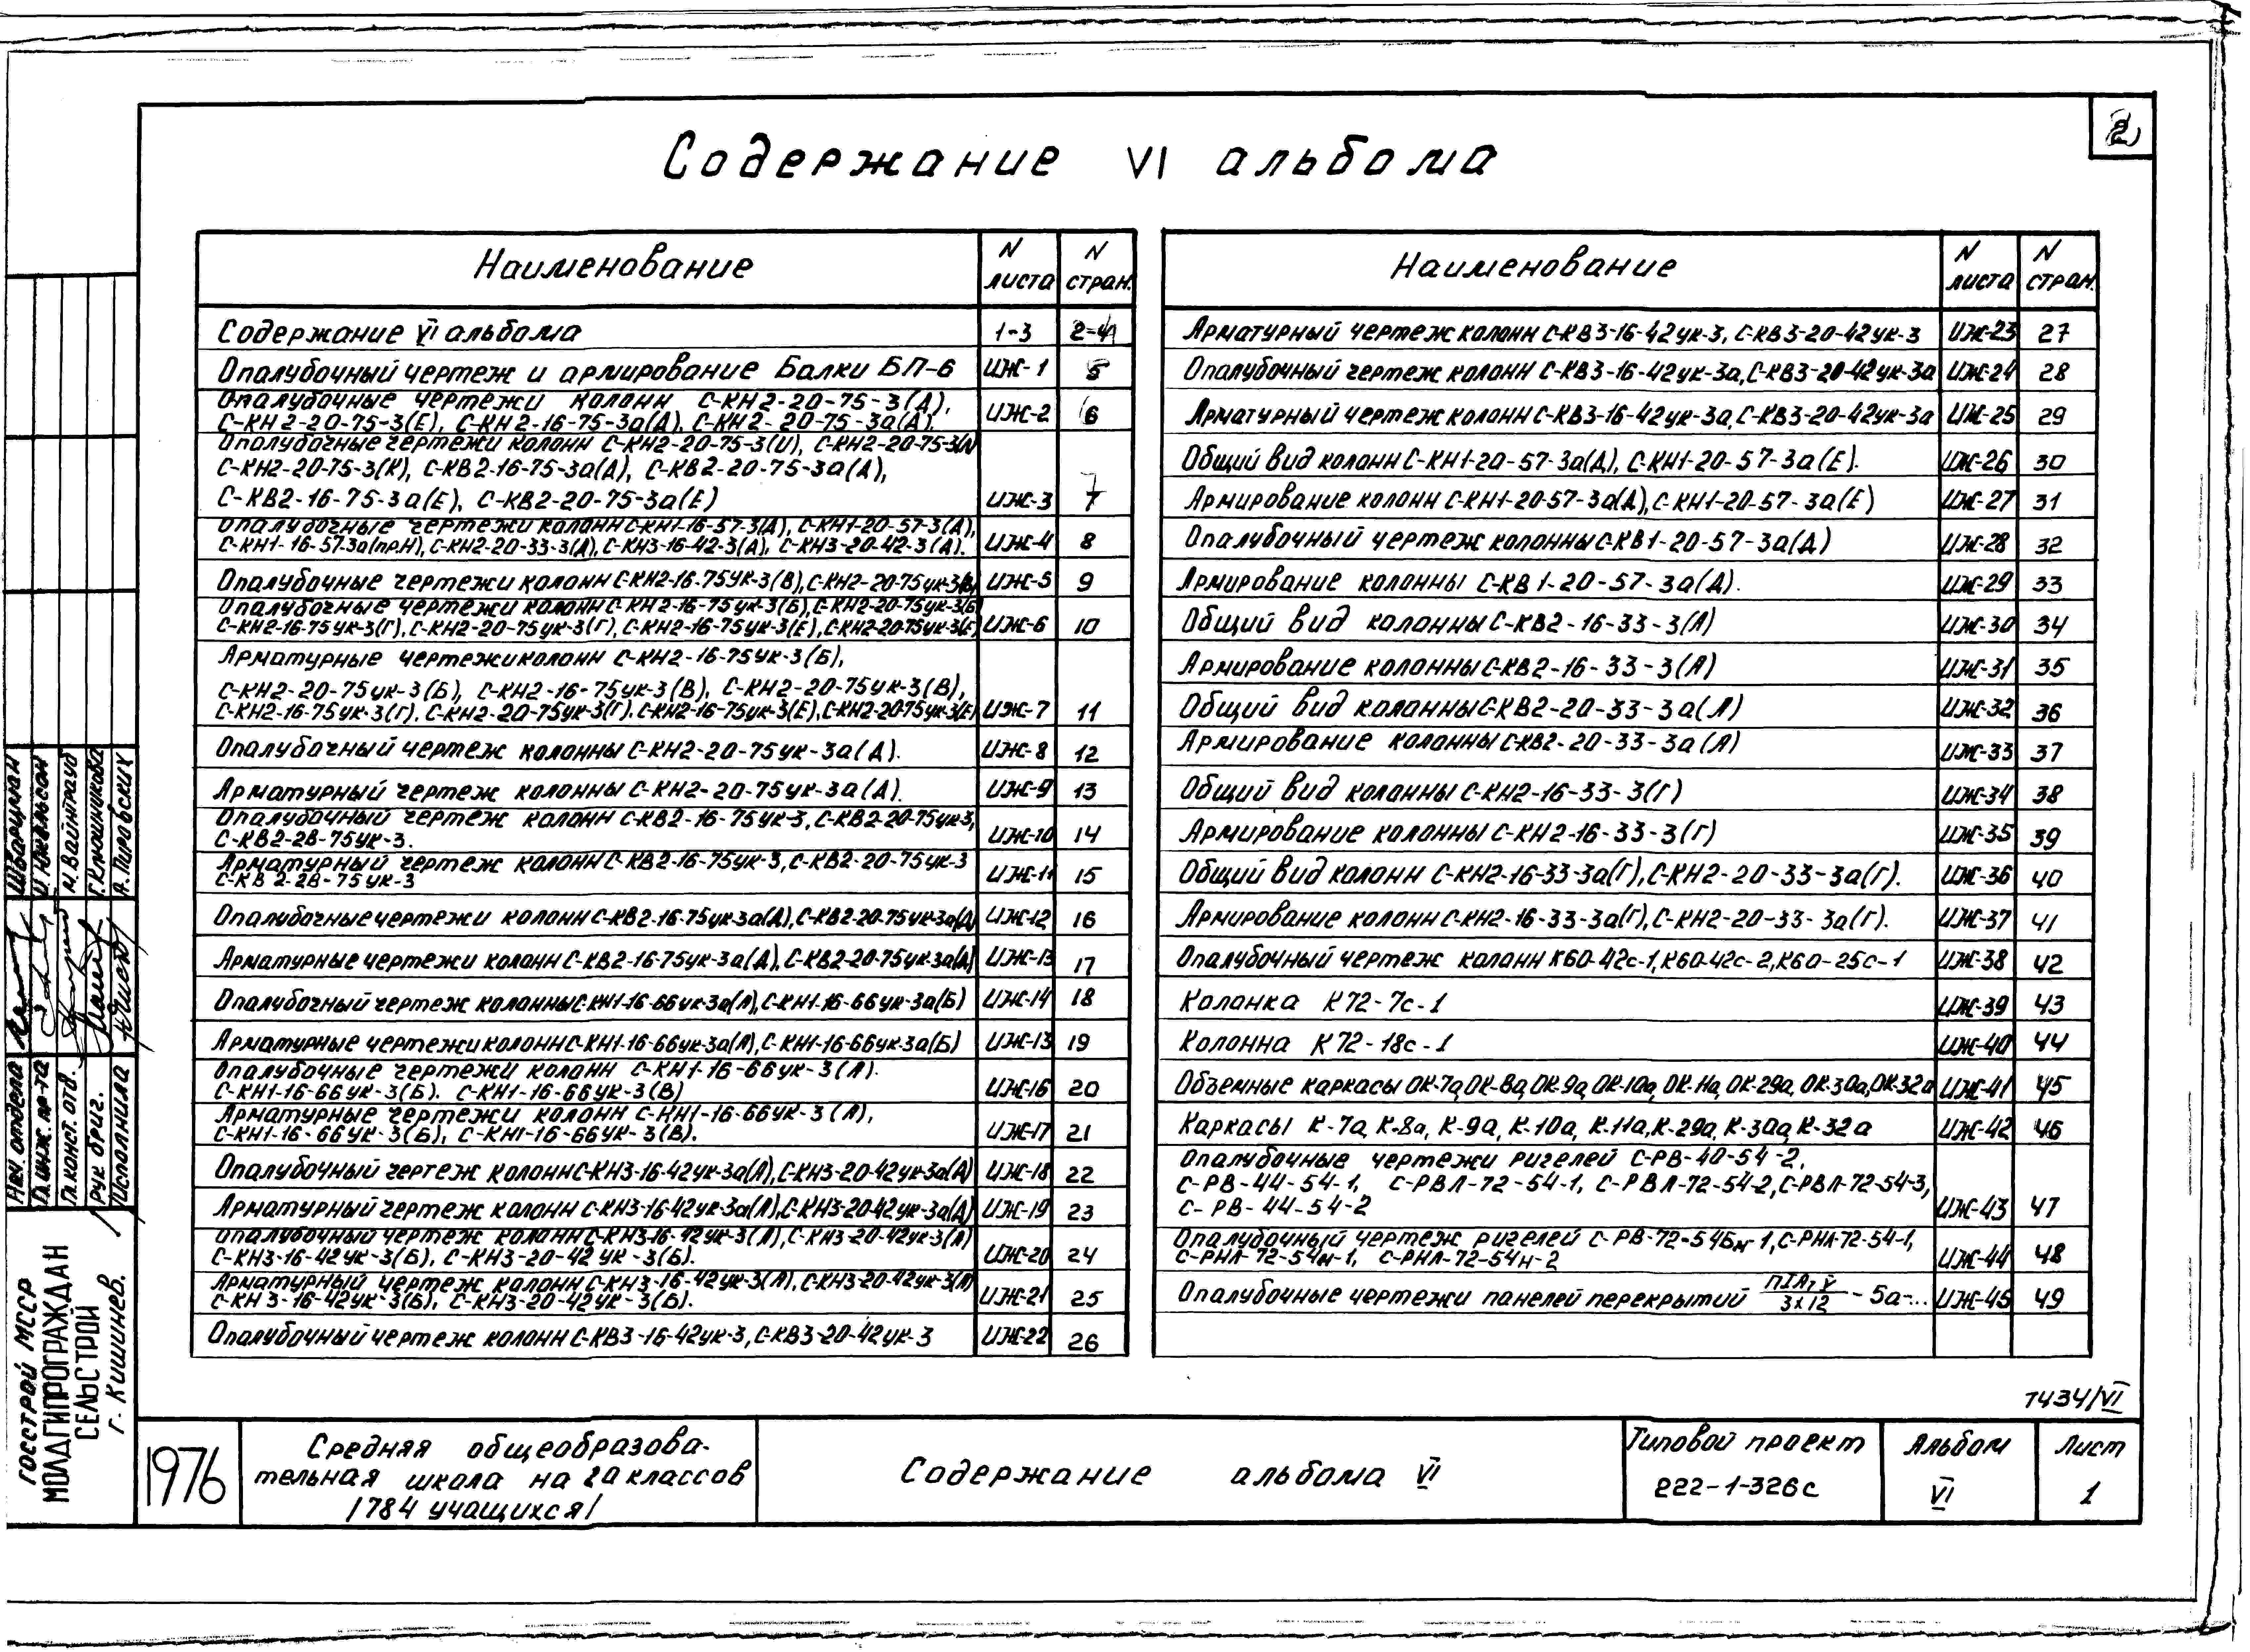 2
Содержание VI альбома
Наименование N листа N стран.
Содержание VI альбома 1-3 2-4
Опалубочный чертеж и армирование Балки БП-6 ИЖ-1 5
Опалубочные чертежи колонн С-КН2-20-75-3(А),
С-КН2-20-75-3(Е), С-КН2-16-75-3а(А), С-КН2-20-75-3а(А). ИЖ-2 6
Опалубочные чертежи колонн С-КН2-20-75-3(И), С-КН2-20-75-3(Л)
С-КН2-20-75-3(К), С-КВ2-16-75-3а(А), С-КВ2-20-75-3а(А),
С-КВ2-16-75-3а(Е), С-КВ2-20-75-3а(Е) ИЖ-3 7
Опалубочные чертежи колонн С-КН1-16-57-3(А), С-КН1-20-57-3(А),
С-КН1-16-57-3а(пр.Н), С-КН2-20-33-3(А), С-КН3-16-42-3(А), С-КН3-20-42-3(А). ИЖ-4 8
Опалубочные чертежи колонн С-КН2-16-75УК-3(В), С-КН2-20-75ук-3(В) ИЖ-5 9
Опалубочные чертежи колонн С-КН2-16-75ук-3(Б), С-КН2-20-75ук-3(Б)
С-КН2-16-75ук-3(Г), С-КН2-20-75ук-3(Г), С-КН2-16-75ук-3(Е), С-КН2-20-75ук-3(Е) ИЖ-6 10
Арматурные чертежи колонн С-КН2-16-75ук-3(Б),
С-КН2-20-75ук-3(Б), С-КН2-16-75ук-3(В), С-КН2-20-75ук-3(В),
С-КН2-16-75ук-3(Г). С-КН2-20-75ук-3(Г). С-КН2-16-75ук-3(Е), С-КН2-20-75ук-3(Е) ИЖ-7 11
Опалубочный чертеж колонны С-КН2-20-75ук-3а(А). ИЖ-8 12
Арматурный чертеж колонны С-КН2-20-75ук-3а(А). ИЖ-9 13
Опалубочный чертеж колонн С-КВ2-16-75ук-3, С-КВ2-20-75ук-3,
С-КВ2-28-75ук-3. ИЖ-10 14
Арматурный чертеж колонн С-КВ2-16-75ук-3, С-КВ2-20-75ук-3
С-КВ2-28-75ук-3 ИЖ-11 15
Опалубочные чертежи колонн С-КВ2-16-75ук-3а(А), С-КВ2-20-75ук-3а(А) ИЖ-12 16
Арматурные чертежи колонн С-КВ2-16-75ук-3а(А), С-КВ2-20-75ук-3а(А) ИЖ-13 17
Опалубочный чертеж колонны С-КН1-16-66ук-3а(А), С-КН1-16-66ук-3а(Б) ИЖ-14 18
Арматурные чертежи колонн С-КН1-16-66ук-3а(А), С-КН1-16-66ук-3а(Б) ИЖ-13 19
Опалубочные чертежи колонн С-КН1-16-66ук-3(А).
С-КН1-16-66ук-3(Б). С-КН1-16-66ук-3(В) ИЖ-16 20
Арматурные чертежи колонн С-КН1-16-66ук-3(А),
С-КН1-16-66ук-3(Б), С-КН1-16-66ук-3(В). ИЖ-17 21
Опалубочный чертеж колонн С-КН3-16-42ук-3а(А), С-КН3-20-42ук-3а(А) ИЖ-18 22
Арматурный чертеж колонн С-КН3-16-42ук-3а(А), С-КН3-20-42ук-3а(А) ИЖ-19 23
Опалубочный чертеж колонн С-КН3-16-42ук-3(А), С-КН3-20-42ук-3(А)
С-КН3-16-42ук-3(Б), С-КН3-20-42ук-3(Б). ИЖ-20 24
Арматурный чертеж колонн С-КН3-16-42ук-3(А), С-КН3-20-42ук-3(А)
С-КН3-16-42ук-3(Б), С-КН3-20-42ук-3(Б). ИЖ-21 25
Опалубочный чертеж колонн С-КВ3-16-42ук-3, С-КВ3-20-42ук-3 ИЖ-22 26
Наименование N листа N стран.
Арматурный чертеж колонн С-КВ3-16-42ук-3, С-КВ3-20-42ук-3 ИЖ-23 27
Опалубочный чертеж колонн С-КВ3-16-42ук-3а, С-КВ3-20-42ук-3а ИЖ-24 28
Арматурный чертеж колонн С-КВ3-16-42ук-3а, С-КВ3-20-42ук-3а ИЖ-25 29
Общий вид колонн С-КН1-20-57-3а(А), С-КН1-20-57-3а(Е). ИЖ-26 30
Армирование колонн С-КН1-20-57-3а(А), С-КН1-20-57-3а(Е) ИЖ-27 31
Опалубочный чертеж колонны С-КВ1-20-57-3а(А) ИЖ-28 32
Армирование колонны С-КВ1-20-57-3а(А). ИЖ-29 33
Общий вид колонны С-КВ2-16-33-3(А) ИЖ-30 34
Армирование колонны С-КВ2-16-33-3(А) ИЖ-31 35
Общий вид колонны С-КВ2-20-33-3а(А) ИЖ-32 36
Армирование колонны С-КВ2-20-33-3а(А) ИЖ-33 37
Общий вид колонны С-КН2-16-33-3(Г) ИЖ-34 38
Армирование колонны С-КН2-16-33-3(Г) ИЖ-35 39
Общий вид колонн С-КН2-16-33-3а(Г), С-КН2-20-33-3а(Г). ИЖ-36 40
Армирование колонн С-КН2-16-33-3а(Г), С-КН2-20-33-3а(Г). ИЖ-37 41
Опалубочный чертеж колонн К60-42с-1, К60-42с-2, К60-25с-1 ИЖ-38 42
Колонка К72-7с-1 ИЖ-39 43
Колонна К72-18с-1 ИЖ-40 44
Объемные каркасы ОК-7а, ОК-8а, ОК-9а, ОК-10а, ОК-11а, ОК-29а, ОК-30а, ОК-32а ИЖ-41 45
Каркасы К-7а, К-8а, К-9а, К-10а, К-11а, К-29а, К-30а, К-32а ИЖ-42 46
Опалубочные чертежи ригелей С-РВ-40-54-2,
С-РВ-44-54-1, С-РВЛ-72-54-1, С-РВЛ-72-54-2, С-РВЛ-72-54-3,
С-РВ-44-54-2 ИЖ-43 47
Опалубочный чертеж ригелей С-РВ-72-54Бн-1, С-РНЛ-72-54-1,
С-РНЛ-72-54н-1, С-РНЛ-72-54н-2 ИЖ-44 48
Опалубочные чертежи панелей перекрытий ПIАтV/3x12 - 5а-... ИЖ-45 49
1434/VI
1976
Средняя общеобразова-
тельная школа на 20 классов
/784 учащихся/
Содержание альбома VI
Типовой проект
222-1-326с
Альбом
VI
Лист
1
Нач. отдела Шварцман
Гл. инж. пр-та
Гл. конст. отв. М. Вайнтрауб
Рук бриг. Г. Клюшникова
Исполнила А. Пировских
ГОССТРОЙ МССР
МОЛДГИПРОГРАЖДАН
СЕЛЬСТРОЙ
г. Кишинев.